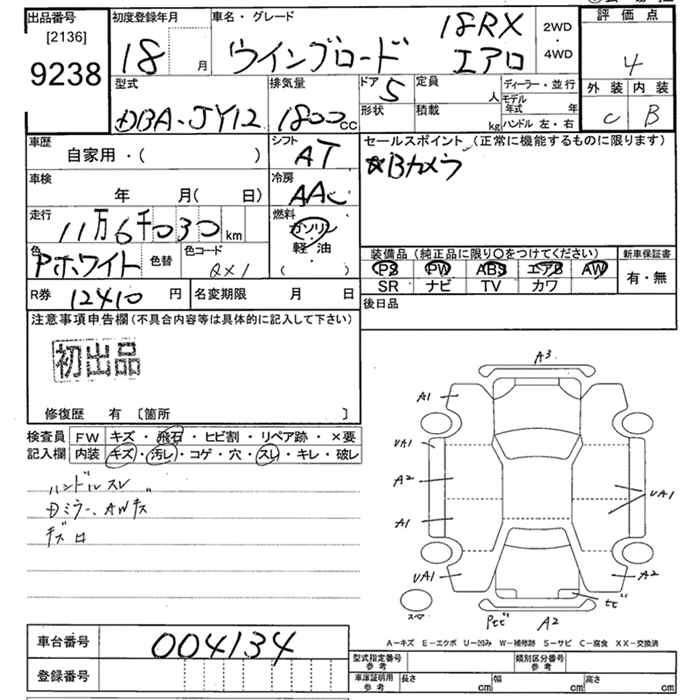 出品番号
[2136]
9238
初度登録年月
18 月
車名・グレード
ウイングロード 18RX エアロ
2WD
・
4WD
評価点
4
外装 内装
C B
型式
DBA-JY12
排気量
1800cc
ドア 5
形状
定員 人
積載 kg
ディーラー・並行
モデル年式 年
ハンドル 左・右
車歴
自家用・( )
シフト
AT
車検
年 月( 日)
冷房
AAC
走行
11万6千030km
燃料
ガソリン
軽油
( )
色
Pホワイト
色替
色コード
QX1
R券 12410円
名変期限 月 日
セールスポイント (正常に機能するものに限ります)
☆Bカメラ
装備品 (純正品に限り〇をつけてください)
PS PW ABS エアB AW
SR ナビ TV カワ
新車保証書
有・無
後日品
注意事項申告欄(不具合内容等は具体的に記入して下さい)
初出品
修復歴 有 〔箇所 〕
検査員
記入欄
FW キズ・飛石・ヒビ割・リペア跡・×要
内装 キズ・汚レ・コゲ・穴・スレ・キレ・破レ
ハンドルスレ
Dミラー、AWキズ
A3
A1
UA1
A2
A1
UA1
UA1
A2
スペア
Pヒビ
A2
ヒビ
A-キズ E-エクボ U-凹み W-補修跡 S-サビ C-腐食 XX-交換済
車台番号
004134
登録番号
型式指定番号
参考
類別区分番号
参考
車庫証明用
参考
長さ cm
幅 cm
高さ cm